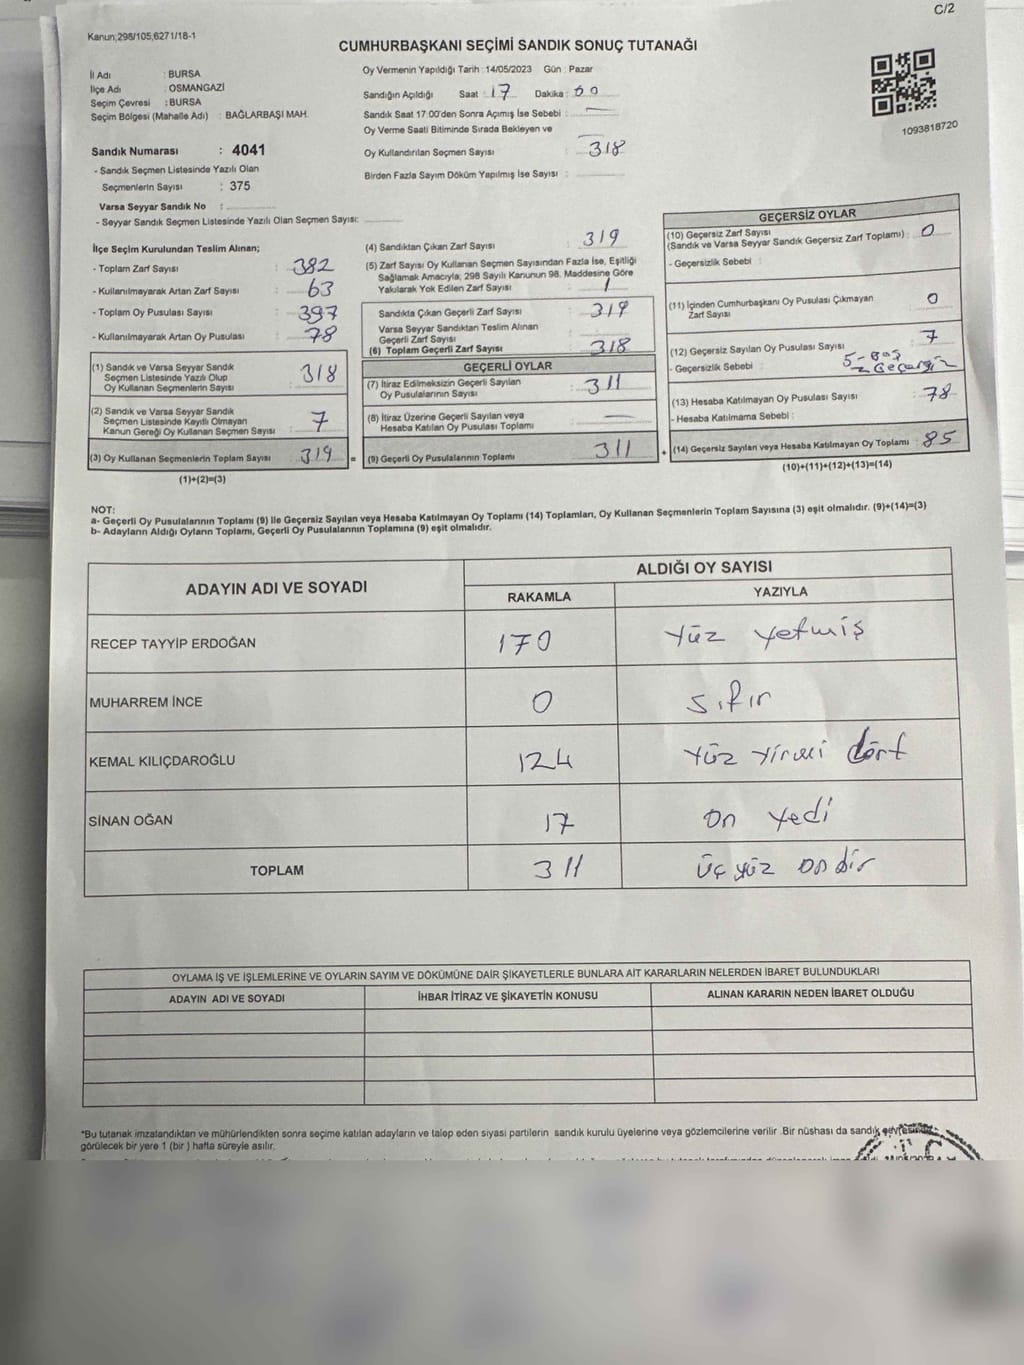 C/2
Kanun;298/105,6271/18-1
CUMHURBAŞKANI SEÇİMİ SANDIK SONUÇ TUTANAĞI
İl Adı : BURSA
İlçe Adı : OSMANGAZİ
Seçim Çevresi : BURSA
Seçim Bölgesi (Mahalle Adı) : BAĞLARBAŞI MAH.
Sandık Numarası : 4041
- Sandık Seçmen Listesinde Yazılı Olan
Seçmenlerin Sayısı : 375
Varsa Seyyar Sandık No :
- Seyyar Sandık Seçmen Listesinde Yazılı Olan Seçmen Sayısı:
Oy Vermenin Yapıldığı Tarih : 14/05/2023 Gün : Pazar
Sandığın Açıldığı Saat : 17 Dakika : 00
Sandık Saat 17:00'den Sonra Açımış İse Sebebi : —
Oy Verme Saati Bitiminde Sırada Bekleyen ve
Oy Kullandırılan Seçmen Sayısı : 318
Birden Fazla Sayım Döküm Yapılmış İse Sayısı :
1093818720
İlçe Seçim Kurulundan Teslim Alınan;
- Toplam Zarf Sayısı : 382
- Kullanılmayarak Artan Zarf Sayısı : 63
- Toplam Oy Pusulası Sayısı : 397
- Kullanılmayarak Artan Oy Pusulası : 78
(1) Sandık ve Varsa Seyyar Sandık
Seçmen Listesinde Yazılı Olup
Oy Kullanan Seçmenlerin Sayısı : 318
(2) Sandık ve Varsa Seyyar Sandık
Seçmen Listesinde Kayıtlı Olmayan
Kanun Gereği Oy Kullanan Seçmen Sayısı : 7
(3) Oy Kullanan Seçmenlerin Toplam Sayısı : 319 =
(1)+(2)=(3)
(4) Sandıktan Çıkan Zarf Sayısı : 319
(5) Zarf Sayısı Oy Kullanan Seçmen Sayısından Fazla İse, Eşitliği
Sağlamak Amacıyla, 298 Sayılı Kanunun 98. Maddesine Göre
Yakılarak Yok Edilen Zarf Sayısı : 1
Sandıkta Çıkan Geçerli Zarf Sayısı : 319
Varsa Seyyar Sandıktan Teslim Alınan
Geçerli Zarf Sayısı :
(6) Toplam Geçerli Zarf Sayısı : 318
GEÇERLİ OYLAR
(7) İtiraz Edilmeksizin Geçerli Sayılan
Oy Pusulalarının Sayısı : 311
(8) İtiraz Üzerine Geçerli Sayılan veya
Hesaba Katılan Oy Pusulası Toplamı : —
(9) Geçerli Oy Pusulalarının Toplamı : 311 +
GEÇERSİZ OYLAR
(10) Geçersiz Zarf Sayısı
(Sandık ve Varsa Seyyar Sandık Geçersiz Zarf Toplamı) : 0
- Geçersizlik Sebebi :
(11) İçinden Cumhurbaşkanı Oy Pusulası Çıkmayan
Zarf Sayısı : 0
(12) Geçersiz Sayılan Oy Pusulası Sayısı : 7
- Geçersizlik Sebebi : 5-Boş
2 Geçersiz
(13) Hesaba Katılmayan Oy Pusulası Sayısı : 78
- Hesaba Katılmama Sebebi :
(14) Geçersiz Sayılan veya Hesaba Katılmayan Oy Toplamı : 85
(10)+(11)+(12)+(13)=(14)
NOT:
a- Geçerli Oy Pusulalarının Toplamı (9) ile Geçersiz Sayılan veya Hesaba Katılmayan Oy Toplamı (14) Toplamları, Oy Kullanan Seçmenlerin Toplam Sayısına (3) eşit olmalıdır. (9)+(14)=(3)
b- Adayların Aldığı Oyların Toplamı, Geçerli Oy Pusulalarının Toplamına (9) eşit olmalıdır.
ADAYIN ADI VE SOYADI ALDIĞI OY SAYISI
RAKAMLA YAZIYLA
RECEP TAYYİP ERDOĞAN 170 Yüz yetmiş
MUHARREM İNCE 0 sıfır
KEMAL KILIÇDAROĞLU 124 Yüz Yirmi dört
SİNAN OĞAN 17 On Yedi
TOPLAM 311 Üç yüz onbir
OYLAMA İŞ VE İŞLEMLERİNE VE OYLARIN SAYIM VE DÖKÜMÜNE DAİR ŞİKAYETLERLE BUNLARA AİT KARARLARIN NELERDEN İBARET BULUNDUKLARI
ADAYIN ADI VE SOYADI İHBAR İTİRAZ VE ŞİKAYETİN KONUSU ALINAN KARARIN NEDEN İBARET OLDUĞU
*Bu tutanak imzalandıktan ve mühürlendikten sonra seçime katılan adayların ve talep eden siyasi partilerin sandık kurulu üyelerine veya gözlemcilerine verilir .Bir nüshası da sandık çevresinde
görülecek bir yere 1 (bir ) hafta süreyle asılır.